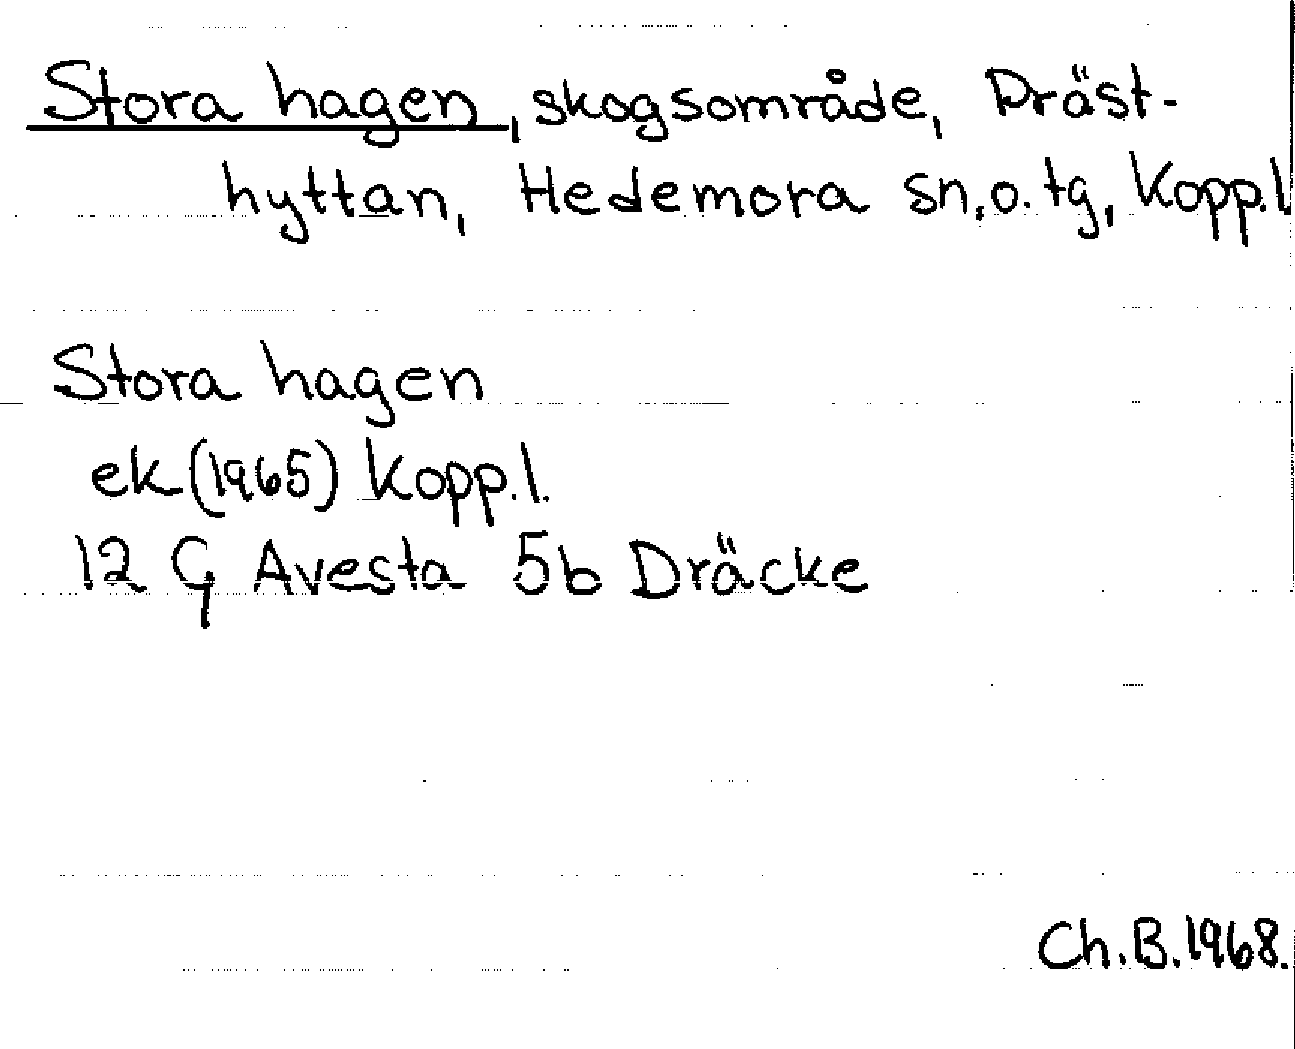 Stora hagen, skogsområde, Präst-
hyttan, Hedemora sn. o. tg, Kopp.l
Stora hagen
ek (1965) Kopp.l.
12 G Avesta 5b Dräcke
Ch.B.1968.